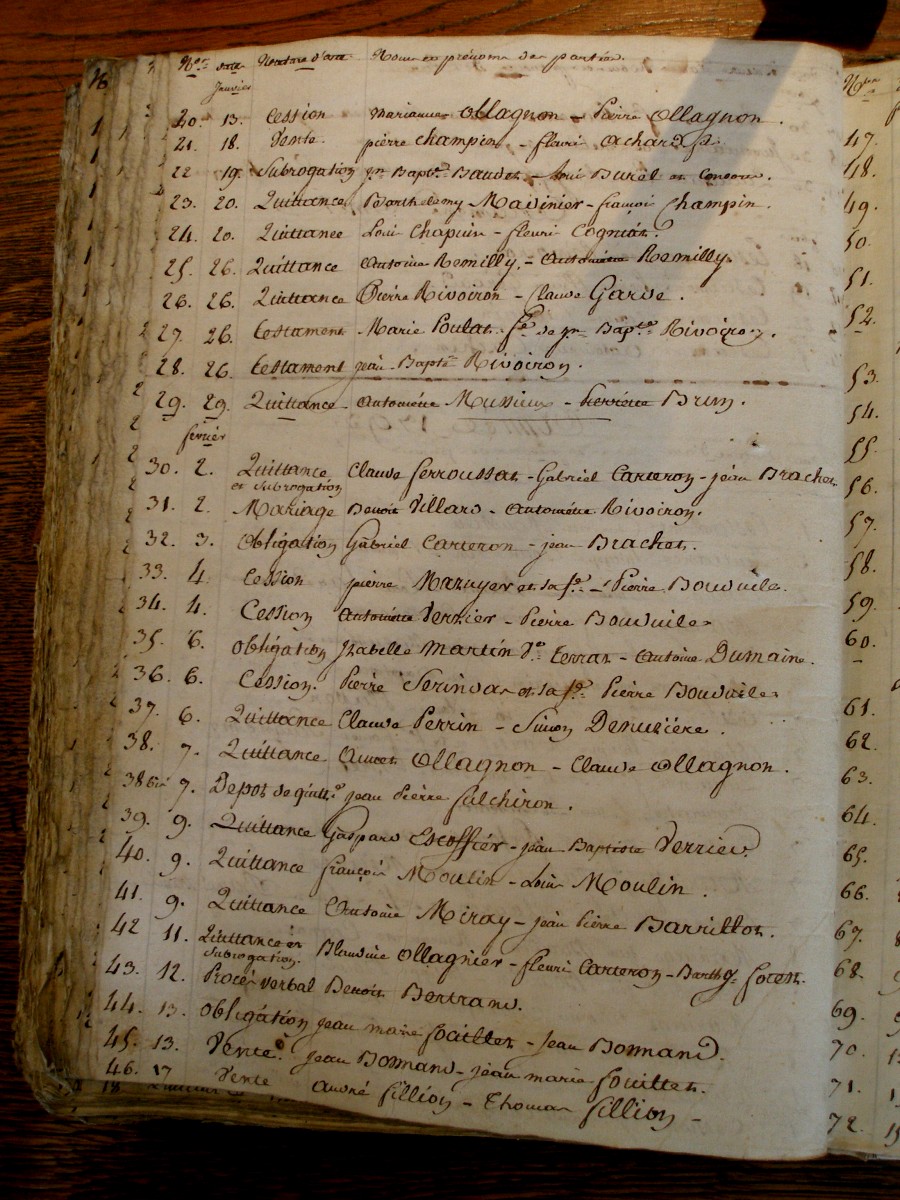 Nos date Nature d'acte Noms et prénoms des parties
Janvier
20. 13. Cession Marianne Ollagnon - Pierre Ollagnon.
21. 18. Vente. pierre Champin - fleuri Achard
22 19. Subrogation jn Bapte. Baudet - Burel et
23. 20. Quittance Barthelemy Mavinier - françois Champin.
24. 20. Quittance Louis Chapuin - fleuri Cognet.
25. 26. Quittance Antoine Remilly. - Antoinette Remilly
26. 26. Quittance Pierre Rivoiron - Claude Garde.
27. 26. testament Marie Poulat fe. de jn Bapte. Rivoiron.
28. 26. testament jean Bapte Rivoiron.
29. 29. Quittance Antoinette Mussieux - Pierrette Brun.
février
30. 2. Quittance Claude ferroussat - Gabriel Carteron - jean Brachet
et Subrogation
31. 2. Mariage Benoit Villard - Antoinette Rivoiron.
32. 3. Obligation Gabriel Carteron - jean Brachet.
33. 4. Cession pierre Mazuyer et sa fe. - Pierre Bouvier
34. 4. Cession Antoinette Verrier - Pierre
35. 6. obligation Izabelle Martin Ve. terrat - Antoine Dumaine.
36. 6. Cession. Pierre et sa fe. Pierre
37. 6. Quittance Claude Perrin - Simon Denuziere.
38. 7. Quittance Ollagnon - Claude Ollagnon.
38 bis 7. Depot de quitte. jean Pierre fulchiron.
39. 9. Quittance Gaspard Escoffier - jean Baptiste Verrier.
40. 9. Quittance françois Moulin - Louis Moulin.
41. 9. Quittance Antoine Miray - jean Pierre Barrillot.
42 11. Quittance et Blandine Ollagnier - fleuri Carteron - Barthy.
Subrogation.
43. 12. Procès verbal Benoit Bertrand.
44. 13. obligation jean marie fouillet - jean Bonnand.
45. 13. Vente. jean Bonnand - jean marie fouillet.
46. 17 Vente André fillion - Thomas fillion -
Nos
47.
48.
49.
50.
51.
52.
53.
54.
55.
56.
57.
58.
59.
60.
61.
62.
63.
64.
65.
66.
67.
68.
69.
70.
71.
72.